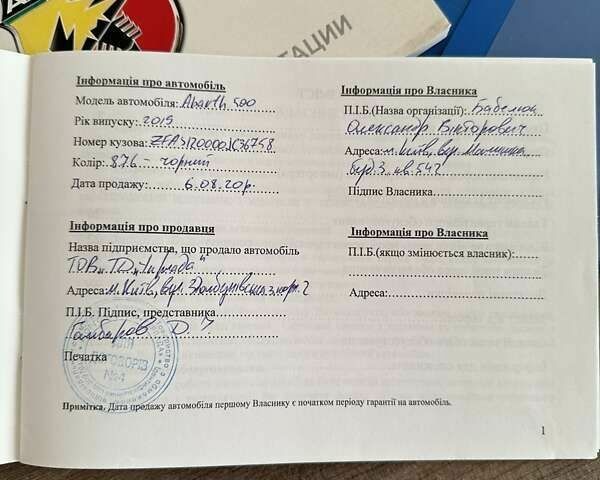 ТАЦИИ
Інформація про автомобіль
Модель автомобіля: Abarth 500
Рік випуску: 2019
Номер кузова:
Колір: 876 - чорний
Дата продажу: 6.08.20р.
Інформація про Власника
П.І.Б.(Назва організації):
Олександр Вікторович
Адреса: м. Київ, вул.
буд. 3 кв. 542
Підпис Власника
Інформація про продавця
Назва підприємства, що продало автомобіль
ТОВ „ТД „
Адреса: м. Київ, вул.
П.І.Б. Підпис, представника
Гамбаров Д.
Печатка
№4
Інформація про Власника
П.І.Б.(якщо змінюється власник):
Адреса:
Примітка. Дата продажу автомобіля першому Власнику є початком періоду гарантії на автомобіль.
1